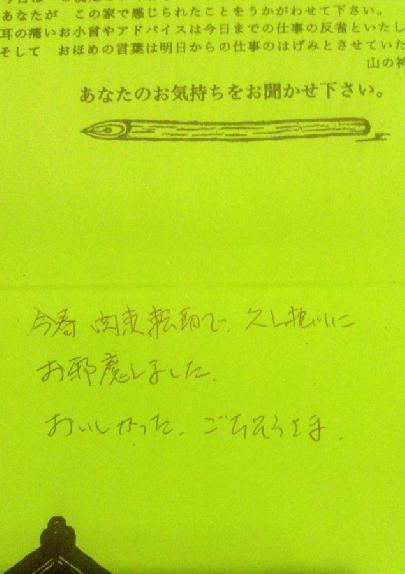 あなたが この家で感じられたことをうかがわせて下さい。
耳の痛いお小言やアドバイスは今日までの仕事の反省といたし
そして おほめの言葉は明日からの仕事のはげみとさせていた
山の神
あなたのお気持ちをお聞かせ下さい。
今春 関東転勤で、久し振りに
お邪魔しました。
おいしかった。ごちそうさま.